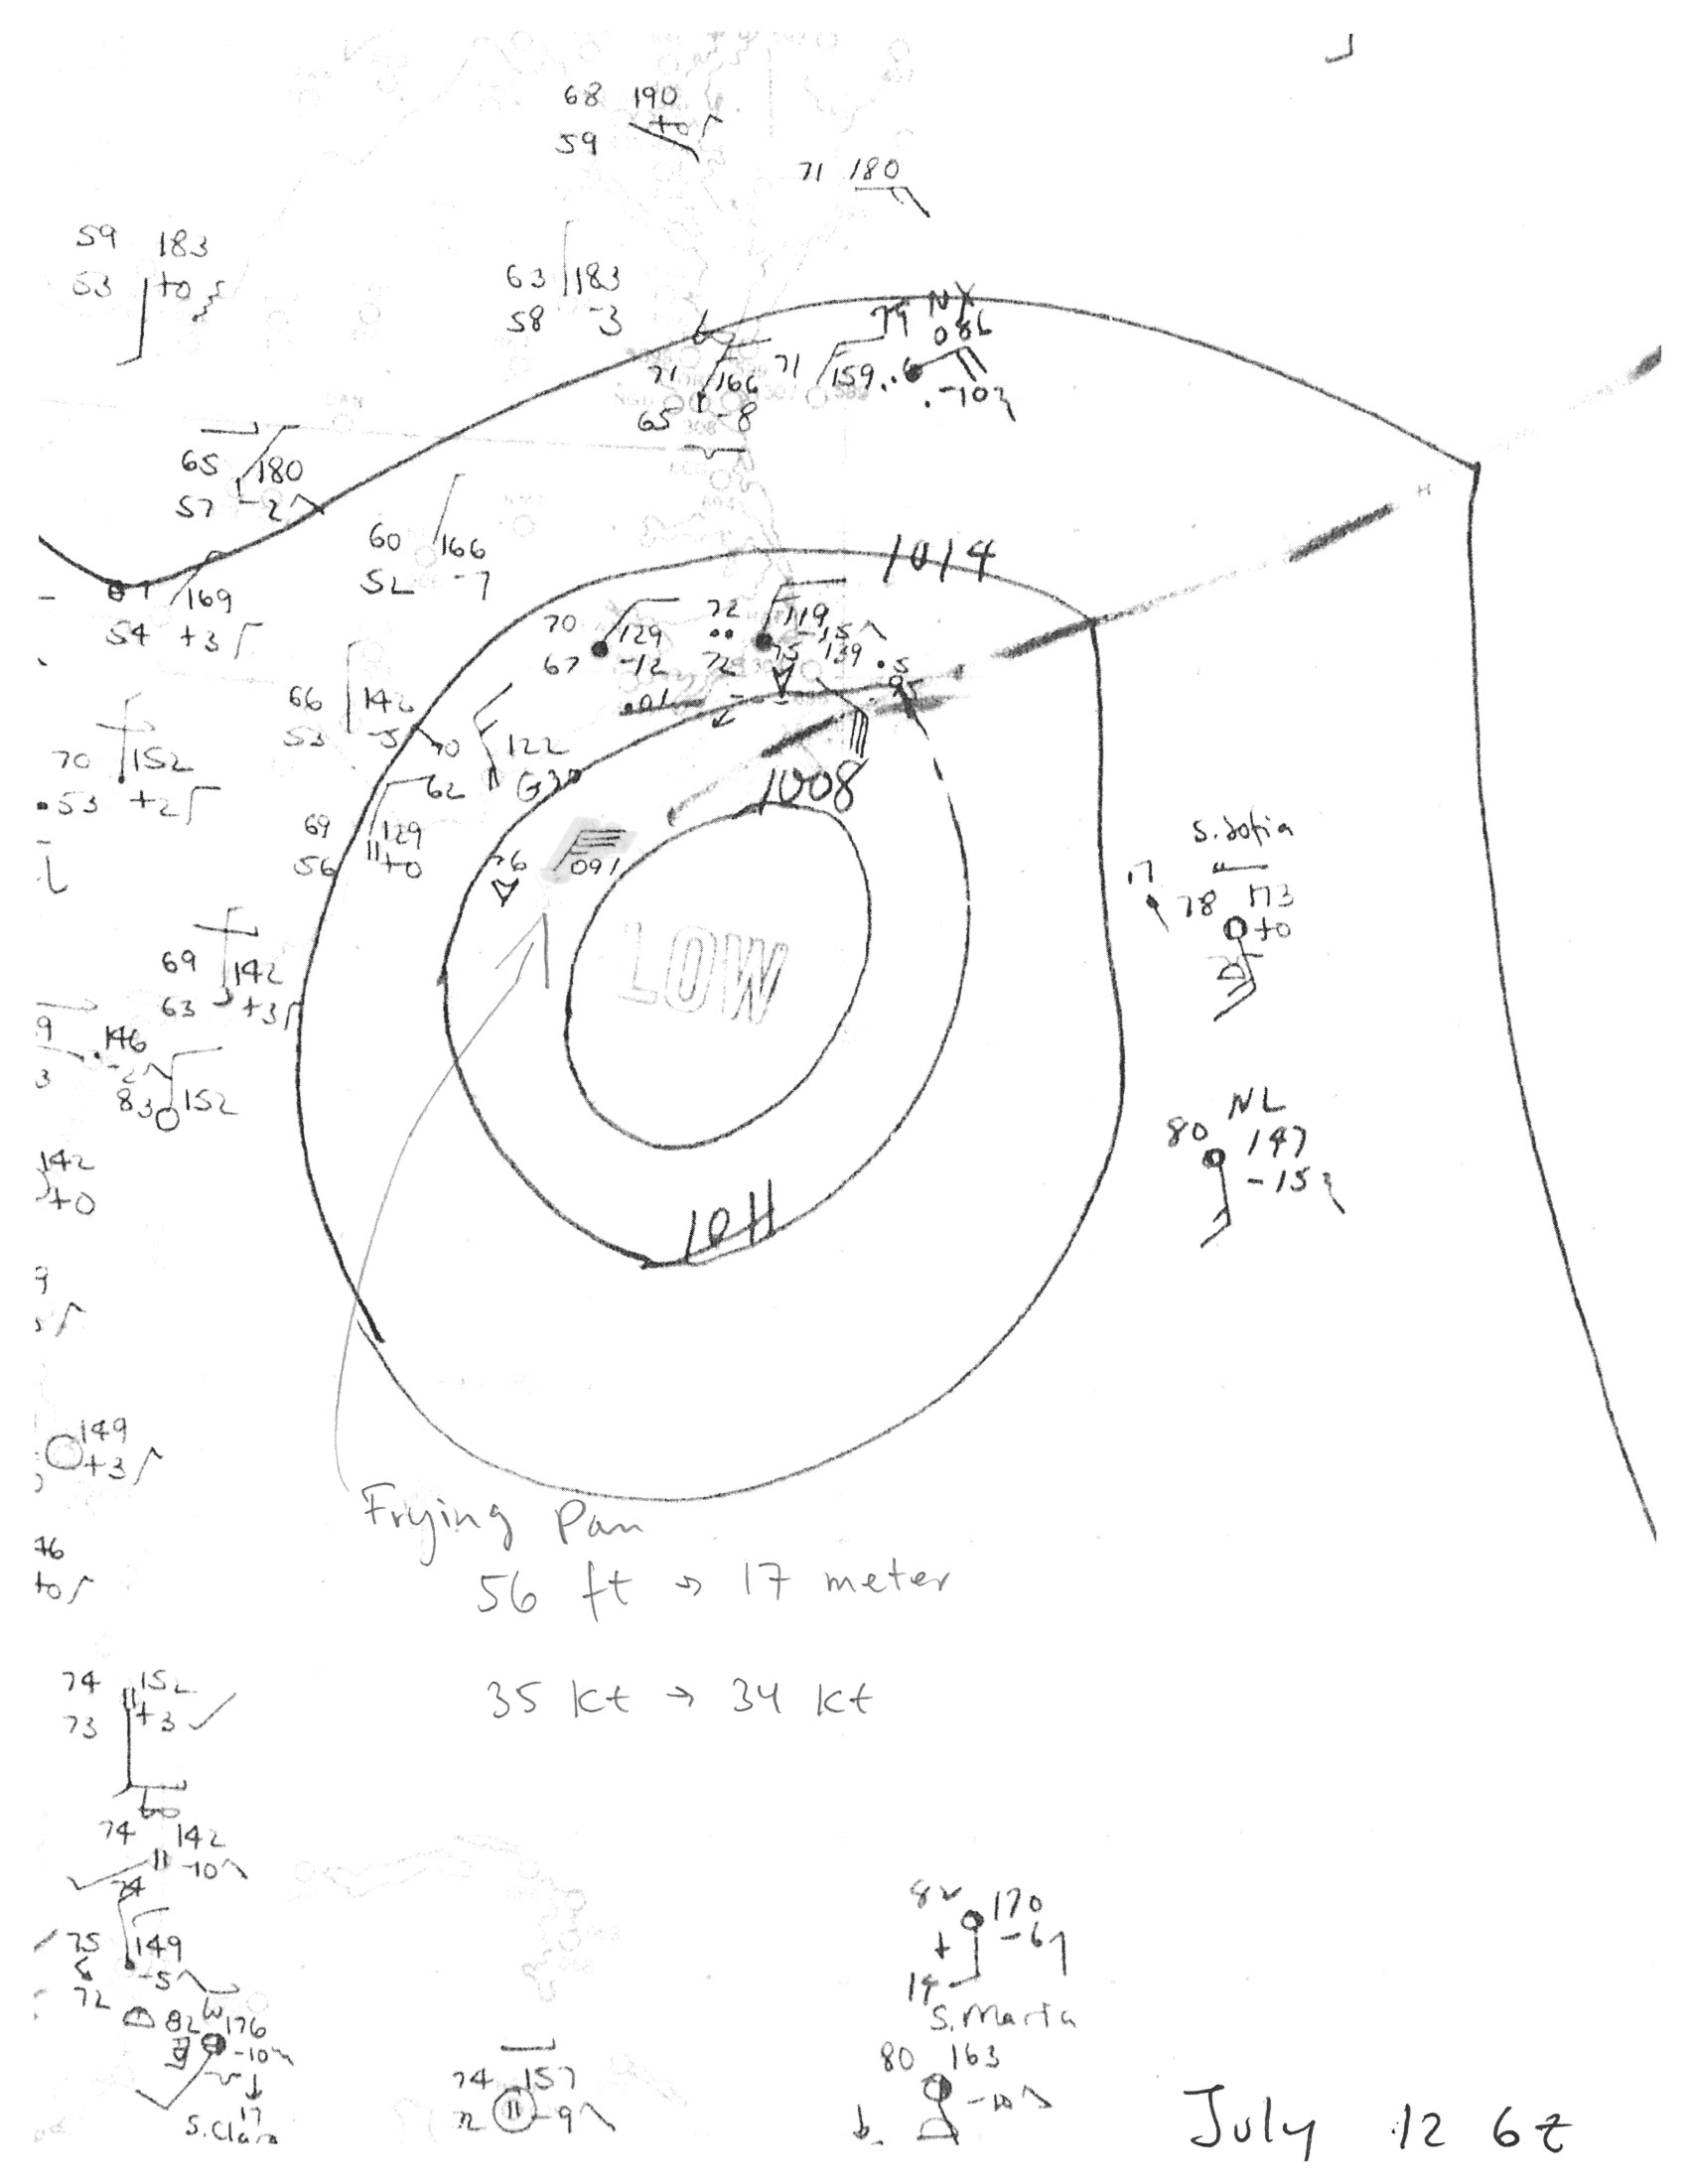 68 190
+0
59
71 180
59 183
53 +0
63 183
58 -3
NX
086
-10
71 166
65 -8
71 159
65 180
57 -2
60 166
52 -7
1014
169
54 +3
70 129
67 -12
72 119
-15
72 75 139
.01
66 142
53 -5
70 122
62 G30
70 152
53 +2
1008
69 129
56 +0
76 091
LOW
S. Sofia
17 78 173
+0
69 142
63 +3
146
-2
83 152
NL
80 147
-15
142
+0
1011
149
+3
Frying Pan
56 ft → 17 meter
35 kt → 34 kt
76
+0
74 152
73 +3
74 142
-10
75 149
-5
72
82 176
-10
17
S. Clara
74 157
72 -9
82 170
-6
S. Marta
80 163
-10
July 12 6z